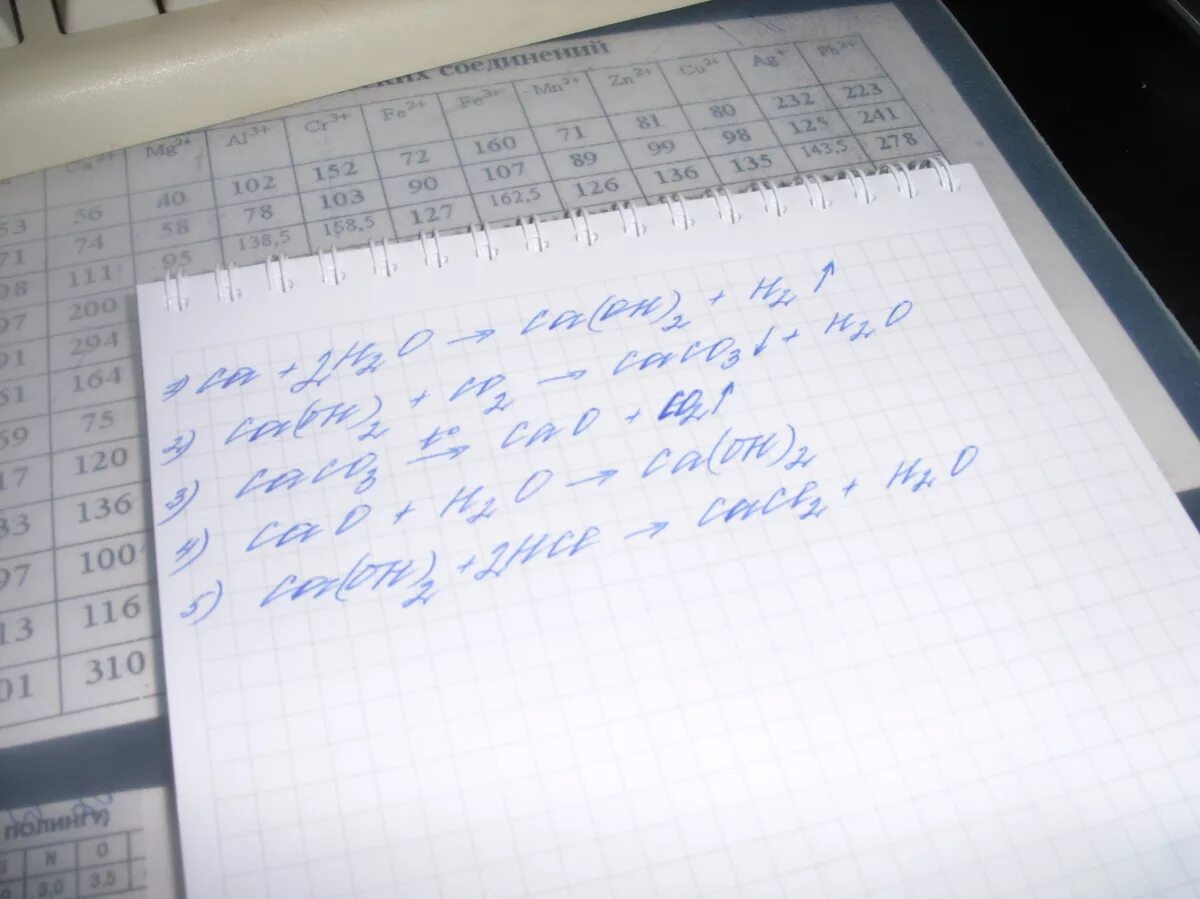 ких соединений
Ca²⁺ Mg²⁺ Al³⁺ Cr³⁺ Fe²⁺ Fe³⁺ Mn²⁺ Zn²⁺ Cu²⁺ Ag⁺ Pb²⁺
53 56 40 102 152 72 160 71 81 80 232 223
71 74 58 78 103 90 107 89 99 98 125 241
98 111 95 138,5 158,5 127 162,5 126 136 135 143,5 278
97 200
91 294
51 164
59 75
17 120
33 136
97 100
13 116
01 310
1) Ca + 2H₂O → Ca(OH)₂ + H₂↑
2) Ca(OH)₂ + CO₂ → CaCO₃↓ + H₂O
3) CaCO₃ t°→ CaO + CO₂↑
4) CaO + H₂O → Ca(OH)₂
5) Ca(OH)₂ + 2HCl → CaCl₂ + H₂O
N O
3,0 3,5